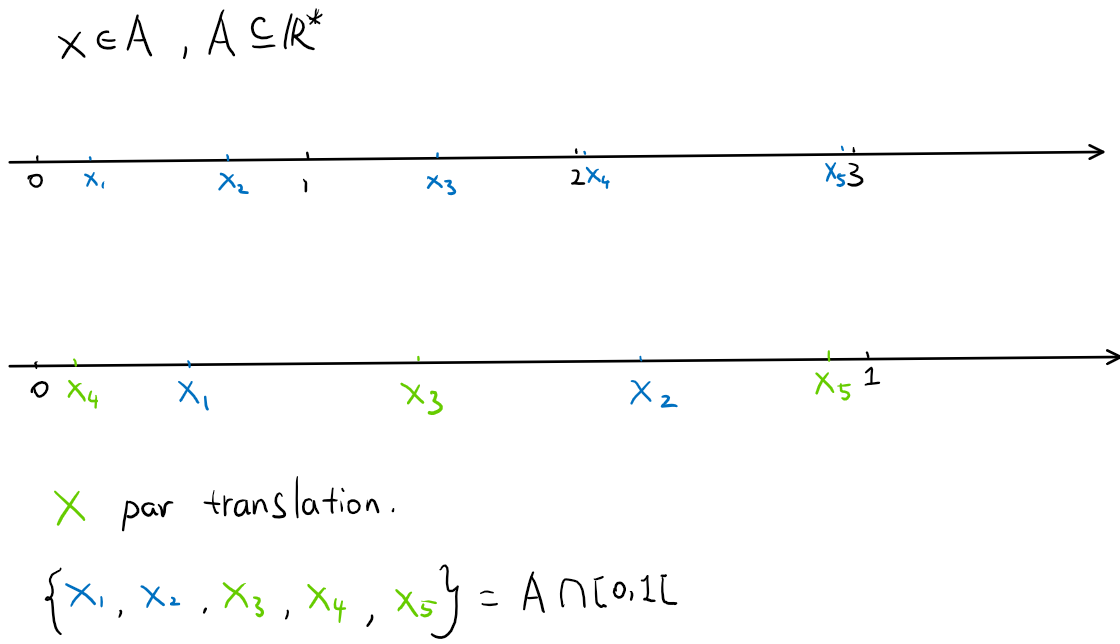 x ∈ A , A ⊆ ℝ*
0 x₁ x₂ 1 x₃ 2 x₄ x₅ 3
0 x₄ x₁ x₃ x₂ x₅ 1
x par translation.
{x₁, x₂, x₃, x₄, x₅} = A ∩ [0,1[